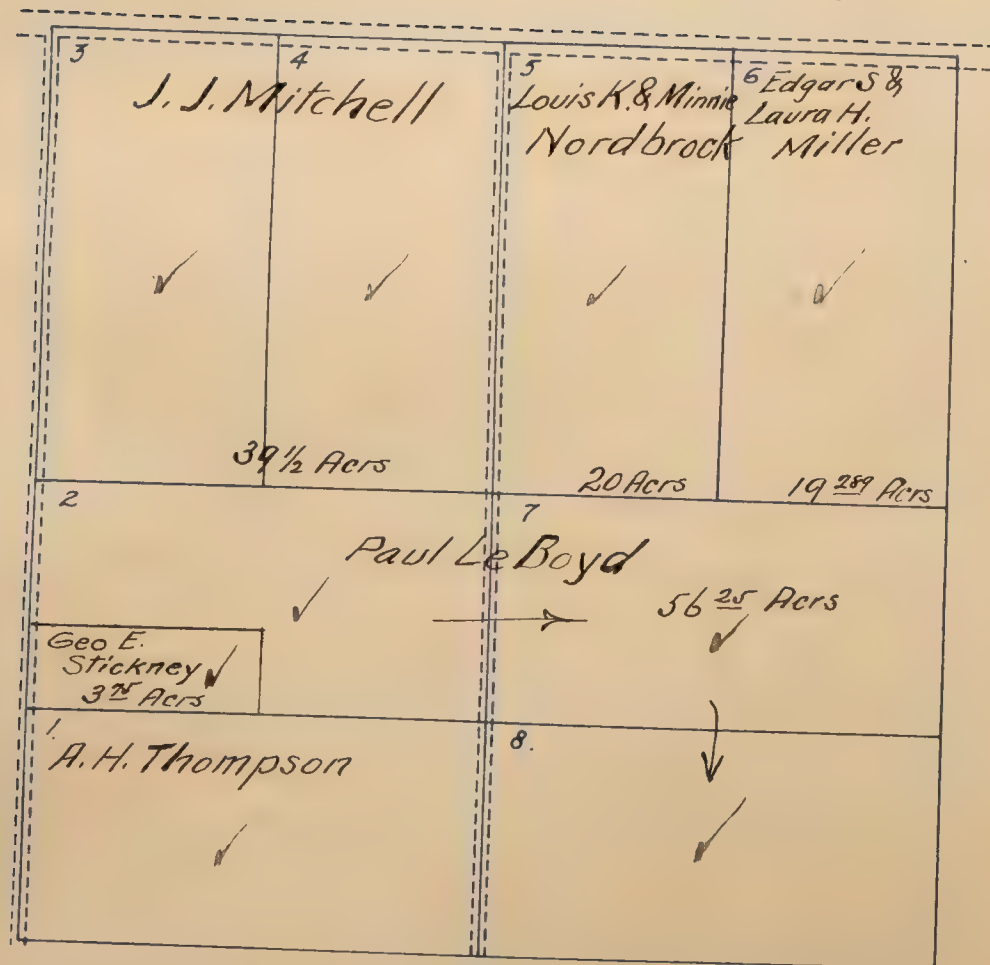 3
4
J. J. Mitchell
39 1/2 Acrs
5
Louis K. & Minnie
Nordbrock
20 Acrs
6 Edgar S &
Laura H.
Miller
19 289 Acrs
2
7
Paul Le Boyd
56 25 Acrs
Geo E.
Stickney
3 75 Acrs
1.
A. H. Thompson
8.